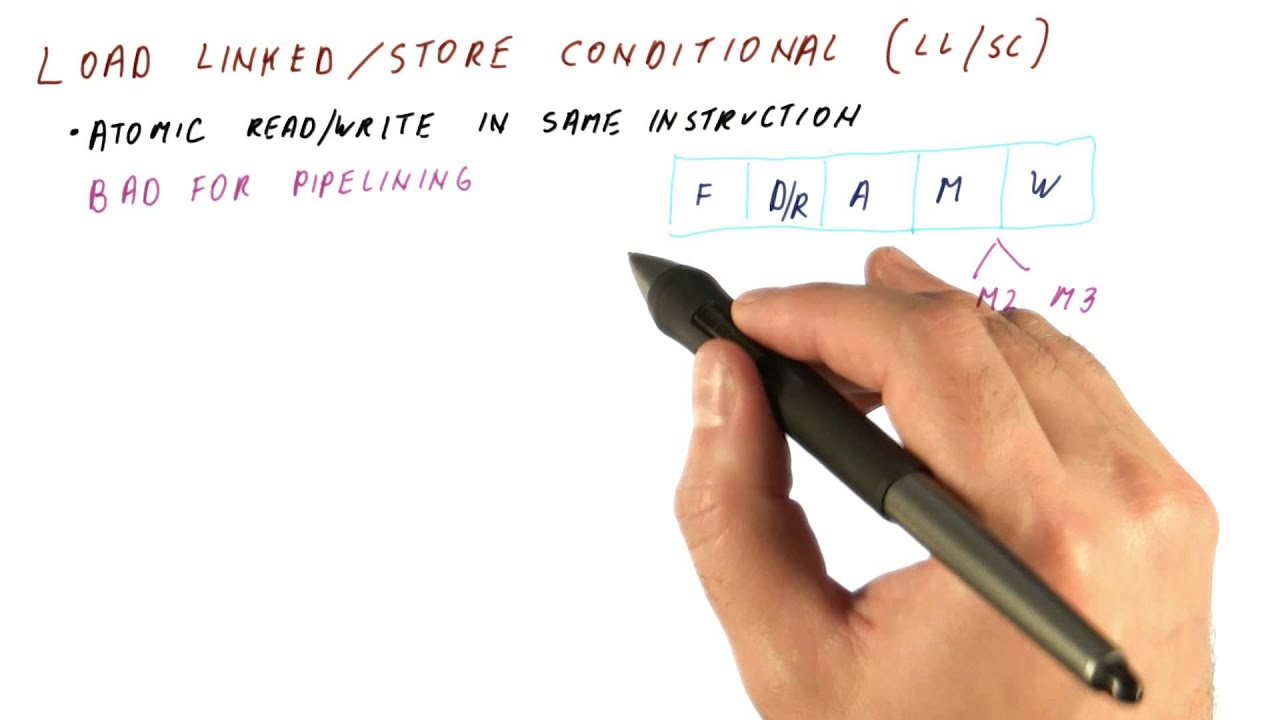 LOAD LINKED/STORE CONDITIONAL (LL/SC)
• ATOMIC READ/WRITE IN SAME INSTRUCTION
BAD FOR PIPELINING
F D/R A M W
M2 M3